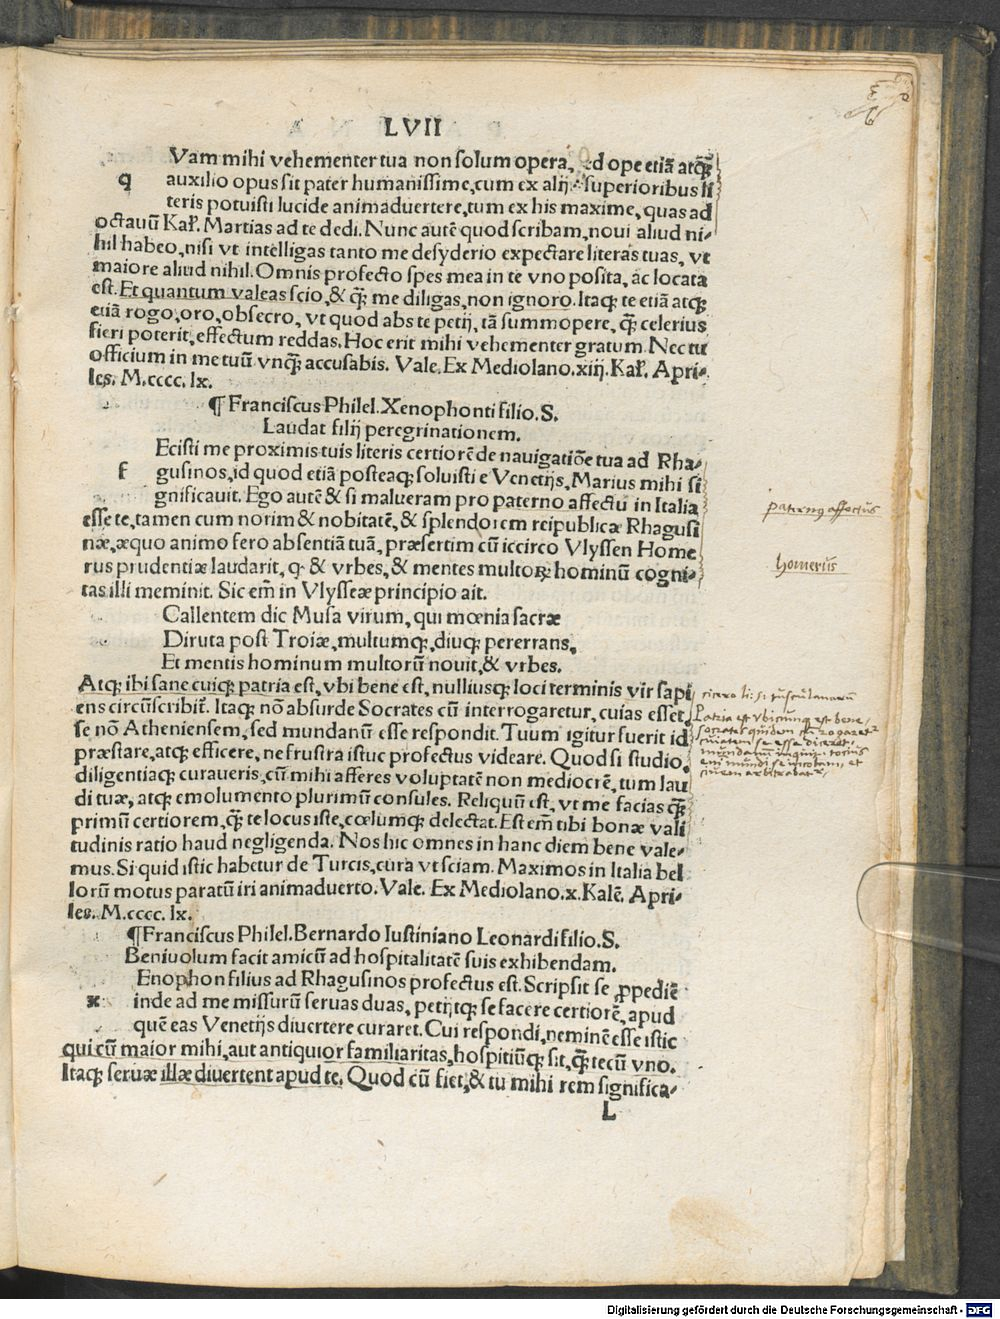 LVII
Vam mihi vehementer tua non solum opera, sed ope etiā atq̃
q auxilio opus sit pater humanissime, cum ex alijs superioribus li
teris potuisti lucide animaduertere, tum ex his maxime, quas ad
octauū Kal̃. Martias ad te dedi. Nunc autē quod scribam, noui aliud ni-
hil habeo, nisi vt intelligas tanto me desyderio expectare literas tuas, vt
maiore aliud nihil. Omnis profecto spes mea in te vno posita, ac locata
est. Et quantum valeas scio, & q̃ me diligas, non ignoro. Itaq; te etiā atq;
etiā rogo, oro, obsecro, vt quod abs te petij, tā summopere, q̃ celerius
fieri poterit, effectum reddas. Hoc erit mihi vehementer gratum. Nec tu
officium in me tuū vnq̃ accusabis. Vale. Ex Mediolano. xiij. Kal̃. Apri-
les. M.cccc. lx.
¶ Franciscus Philel. Xenophonti filio. S.
Laudat filij peregrinationem.
Ecisti me proximis tuis literis certiorē de nauigatiōe tua ad Rha-
f gusinos, id quod etiā posteaq; soluisti e Venetijs, Marius mihi si
gnificauit. Ego autē & si malueram pro paterno affectu in Italia
esse te, tamen cum norim & nobitatē, & splendorem reipublicæ Rhagusi
næ, æquo animo fero absentiā tuā, præsertim cū iccirco Vlyssen Home
rus prudentiæ laudarit, q & vrbes, & mentes multoꝝ hominū cogni-
tas illi meminit. Sic em̄ in Vlysseæ principio ait.
Callentem dic Musa virum, qui mœnia sacræ
Diruta post Troiæ, multumq;, diuq; pererrans,
Et mentis hominum multorū nouit, & vrbes.
Atq; ibi sane cuiq; patria est, vbi bene est, nulliusq; loci terminis vir sapi
ens circūscribit̃. Itaq; nō absurde Socrates cū interrogaretur, cuias esset,
se nō Atheniensem, sed mundanū esse respondit. Tuum igitur fuerit id
præstare, atq; efficere, ne frustra istuc profectus videare. Quod si studio,
diligentiaq; curaueris, cū mihi afferes voluptatē non mediocrē, tum lau
di tuæ, atq; emolumento plurimū consules. Reliquū est, vt me facias q̃
primū certiorem, q̃ te locus iste, cœlumq; delectat. Est em̄ tibi bonæ vali
tudinis ratio haud negligenda. Nos hic omnes in hanc diem bene vale-
mus. Si quid istic habetur de Turcis, cura vt sciam. Maximos in Italia bel
lorū motus paratū iri animaduerto. Vale. Ex Mediolano. x. Kalē. Apri-
les. M.cccc. lx.
¶ Franciscus Philel. Bernardo Iustiniano Leonardi filio. S.
Beniuolum facit amicū ad hospitalitatē suis exhibendam.
Enophon filius ad Rhagusinos profectus est. Scripsit se ꝓpediē
x inde ad me missurū seruas duas, petijtq; se facere certiorē, apud
quē eas Venetijs diuertere curaret. Cui respondi, neminē esse istic
qui cū maior mihi, aut antiquior familiaritas, hospitiūq; sit, q̃ tecū vno.
Itaq; seruæ illæ diuertent apud te. Quod cū fiet, & tu mihi rem significa-
L
paternus affectus
homerus
cicero li: 5: tusculanarum
Patria est vbicunq; est bene,
Socrates quidem cū rogaret̃
cuiatem se esse diceret:
mundanum inquit. totius
em̄ mūdi se incolam, et
ciuem arbitrabat̃,
Digitalisierung gefördert durch die Deutsche Forschungsgemeinschaft - DFG